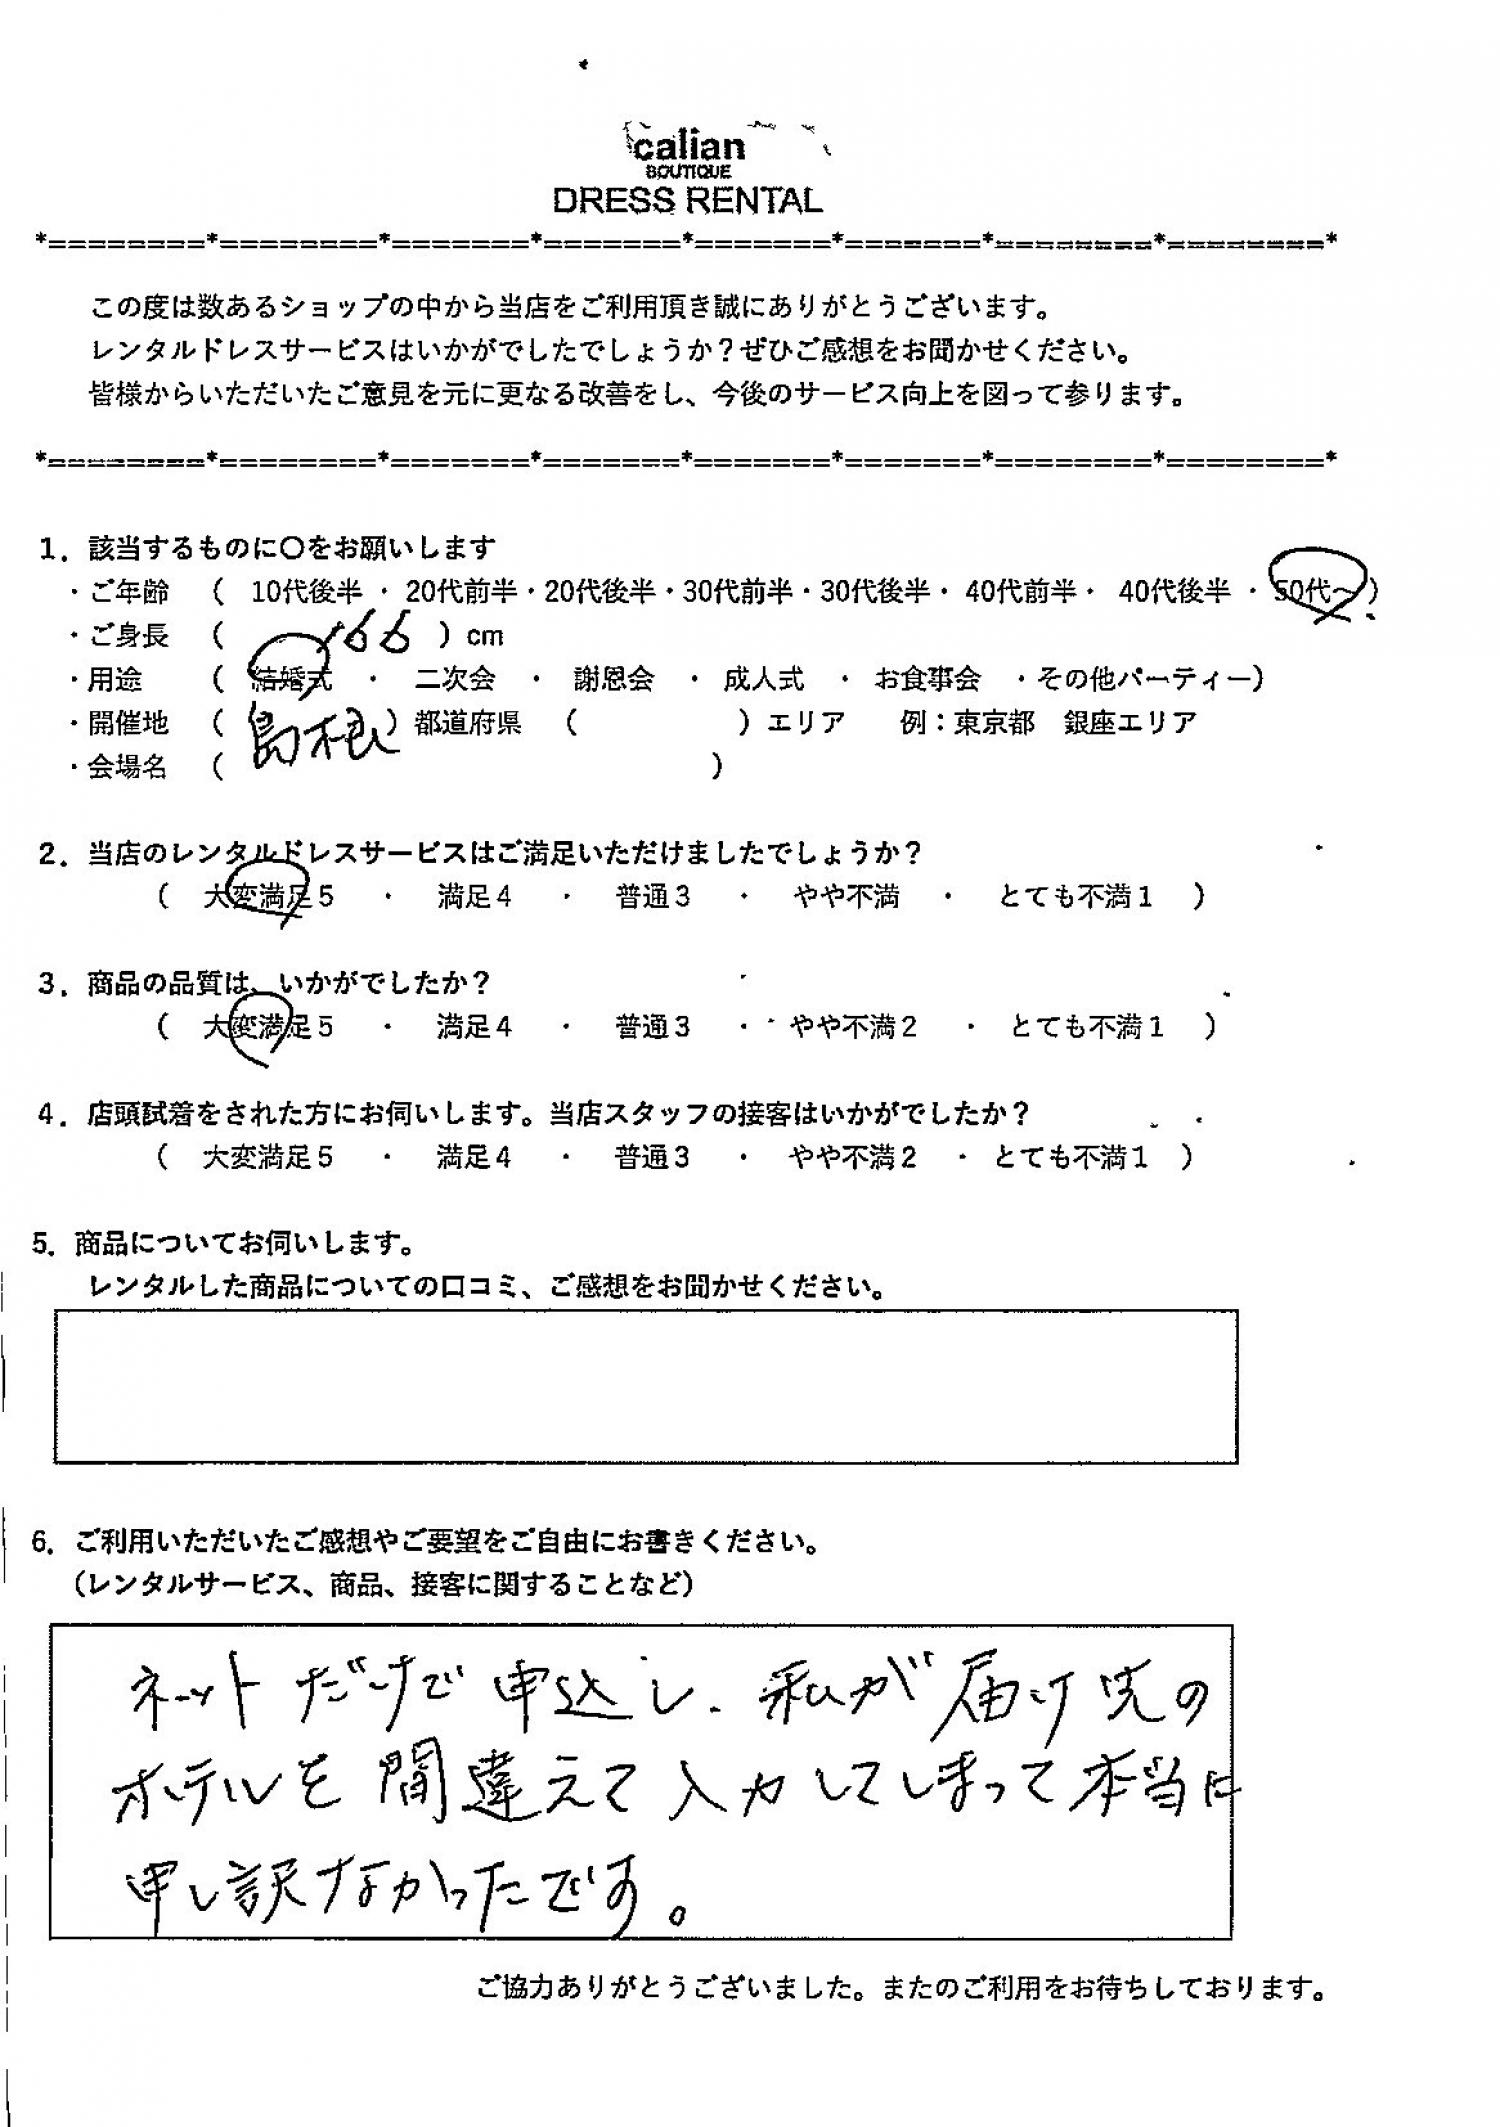 calian
BOUTIQUE
DRESS RENTAL
*========*========*=======*=======*=======*=======*========*========*
この度は数あるショップの中から当店をご利用頂き誠にありがとうございます。
レンタルドレスサービスはいかがでしたでしょうか？ぜひご感想をお聞かせください。
皆様からいただいたご意見を元に更なる改善をし、今後のサービス向上を図って参ります。
*========*========*=======*=======*=======*=======*========*========*
1．該当するものに〇をお願いします
・ご年齢 （ 10代後半 ・ 20代前半・20代後半・30代前半・30代後半・ 40代前半・ 40代後半 ・ 50代～）
・ご身長 （ 166 ）cm
・用途 （ 結婚式 ・ 二次会 ・ 謝恩会 ・ 成人式 ・ お食事会 ・その他パーティー）
・開催地 （ 島根 ）都道府県 （ ）エリア 例：東京都 銀座エリア
・会場名 （ ）
2．当店のレンタルドレスサービスはご満足いただけましたでしょうか？
（ 大変満足５ ・ 満足４ ・ 普通３ ・ やや不満 ・ とても不満１ ）
3．商品の品質は、いかがでしたか？
（ 大変満足５ ・ 満足４ ・ 普通３ ・ やや不満２ ・ とても不満１ ）
4．店頭試着をされた方にお伺いします。当店スタッフの接客はいかがでしたか？
（ 大変満足５ ・ 満足４ ・ 普通３ ・ やや不満２ ・ とても不満１ ）
5．商品についてお伺いします。
レンタルした商品についての口コミ、ご感想をお聞かせください。
6．ご利用いただいたご感想やご要望をご自由にお書きください。
（レンタルサービス、商品、接客に関することなど）
ネットだけで申込し、私が届け先の
ホテルを間違えて入力してしまって本当に
申し訳なかったです。
ご協力ありがとうございました。またのご利用をお待ちしております。